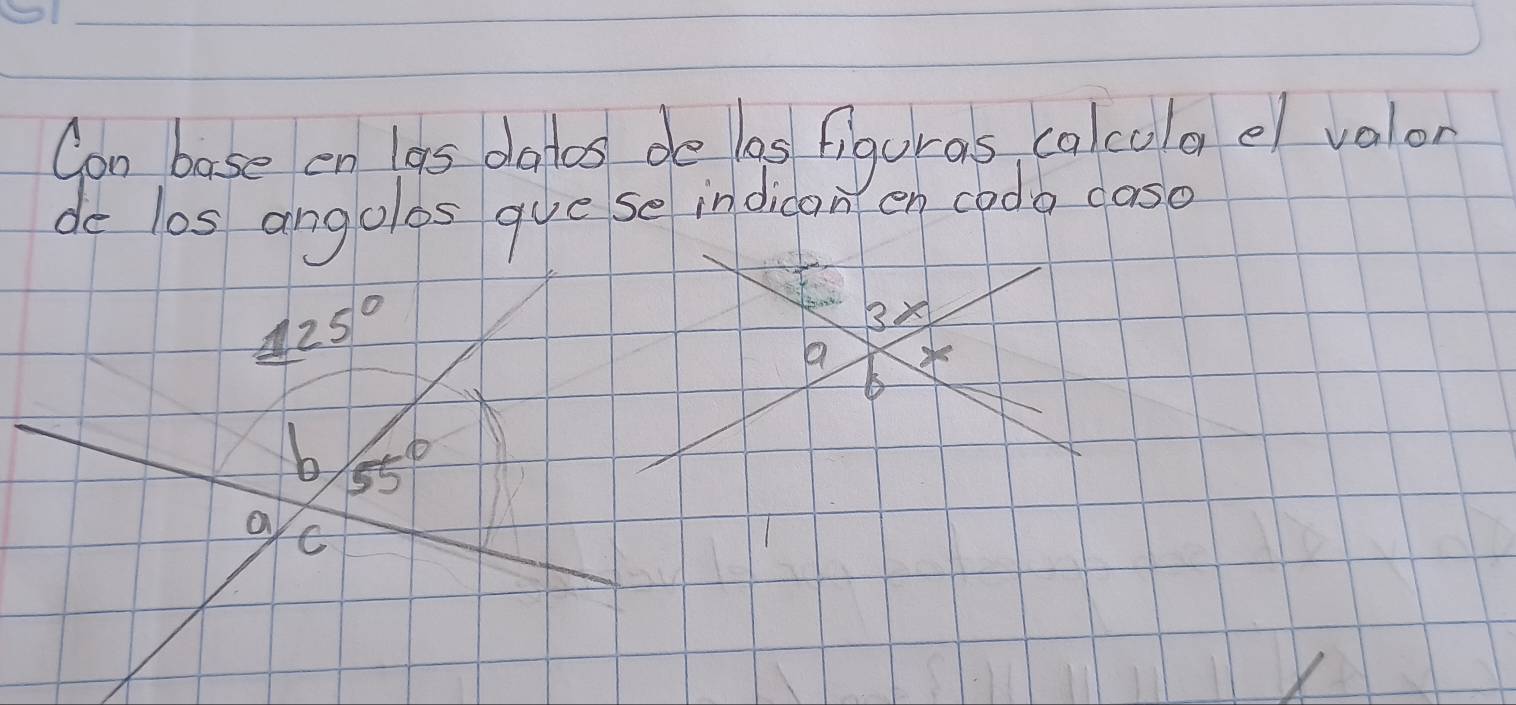 Con base en las datos de las figuras, calcula el valor
de los angulos que se indican en cada caso
125°
3x
a
x
b
b
55°
a
c